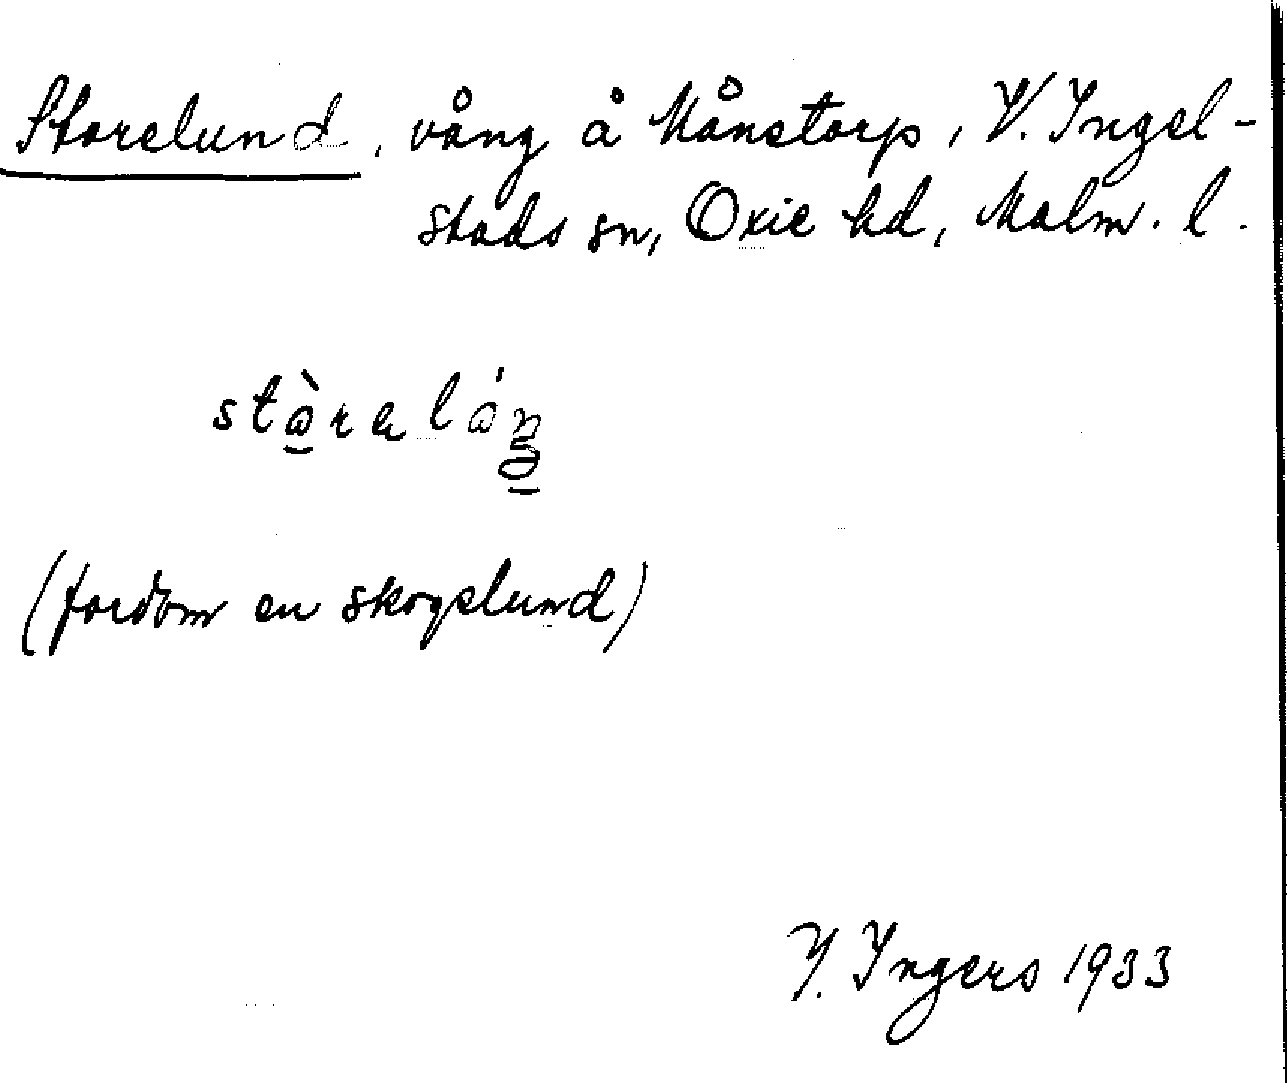 Storelund, vång å Månstorp, V. Ingel-
stads sn, Oxie hd, Malm. l.
(fordom en skogslund)
I. Ingers 1933